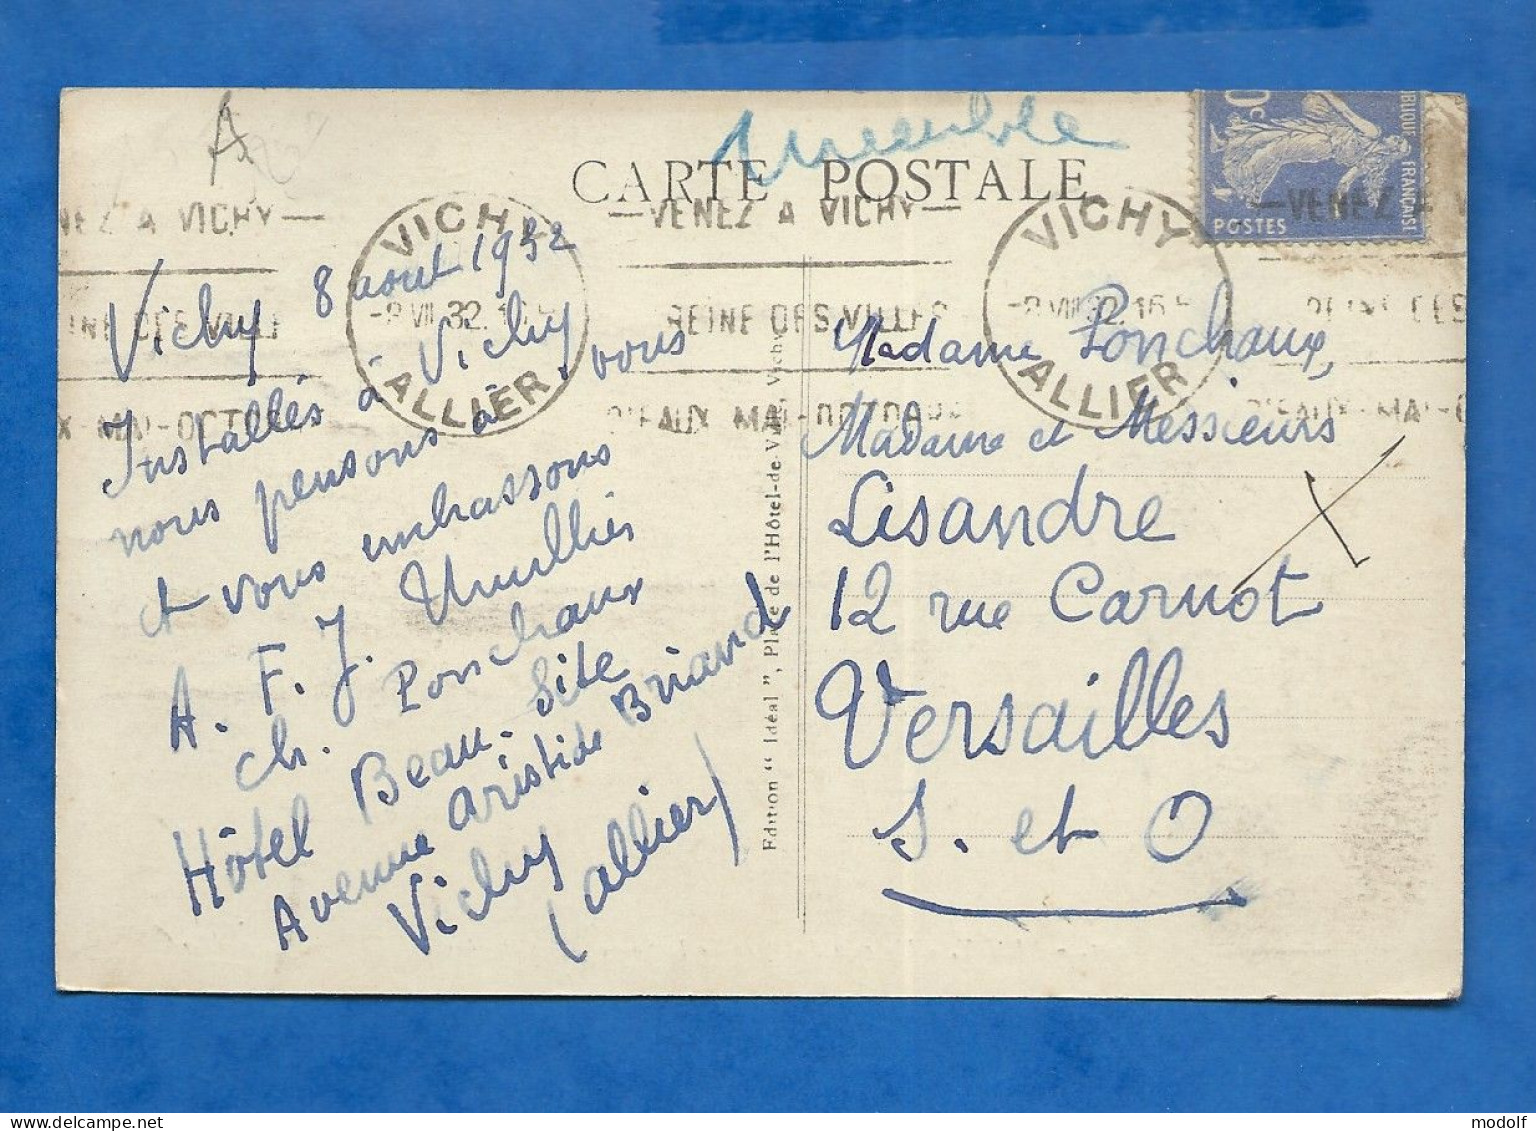 A
CARTE POSTALE
0c
RIQUE FRANÇAISE
POSTES
VENEZ A VICHY
REINE DES VILLES
D'EAUX MAI-OCTOBRE
VICHY
-8 VIII 32. 16
ALLIER
VICHY
-8 VIII 32. 16
ALLIER
VENEZ A V
REINE DES
D'EAUX-MAI-O
NEZ A VICHY
INE DES VILLE
X-MAI-OCTO
Vichy 8 aout 1932
Installés à Vichy,
nous pensons à vous
et vous embrassons
A. F. J.
Ch. Ponchaux
Hôtel Beau-Site
Avenue Aristide Briand
Vichy
(Allier)
Edition " Idéal ", Place de l'Hôtel-de-Ville, Vichy
Madame Ponchaux,
Madame et Messieurs
Lisandre
12 rue Carnot
Versailles
S. et O
modolf